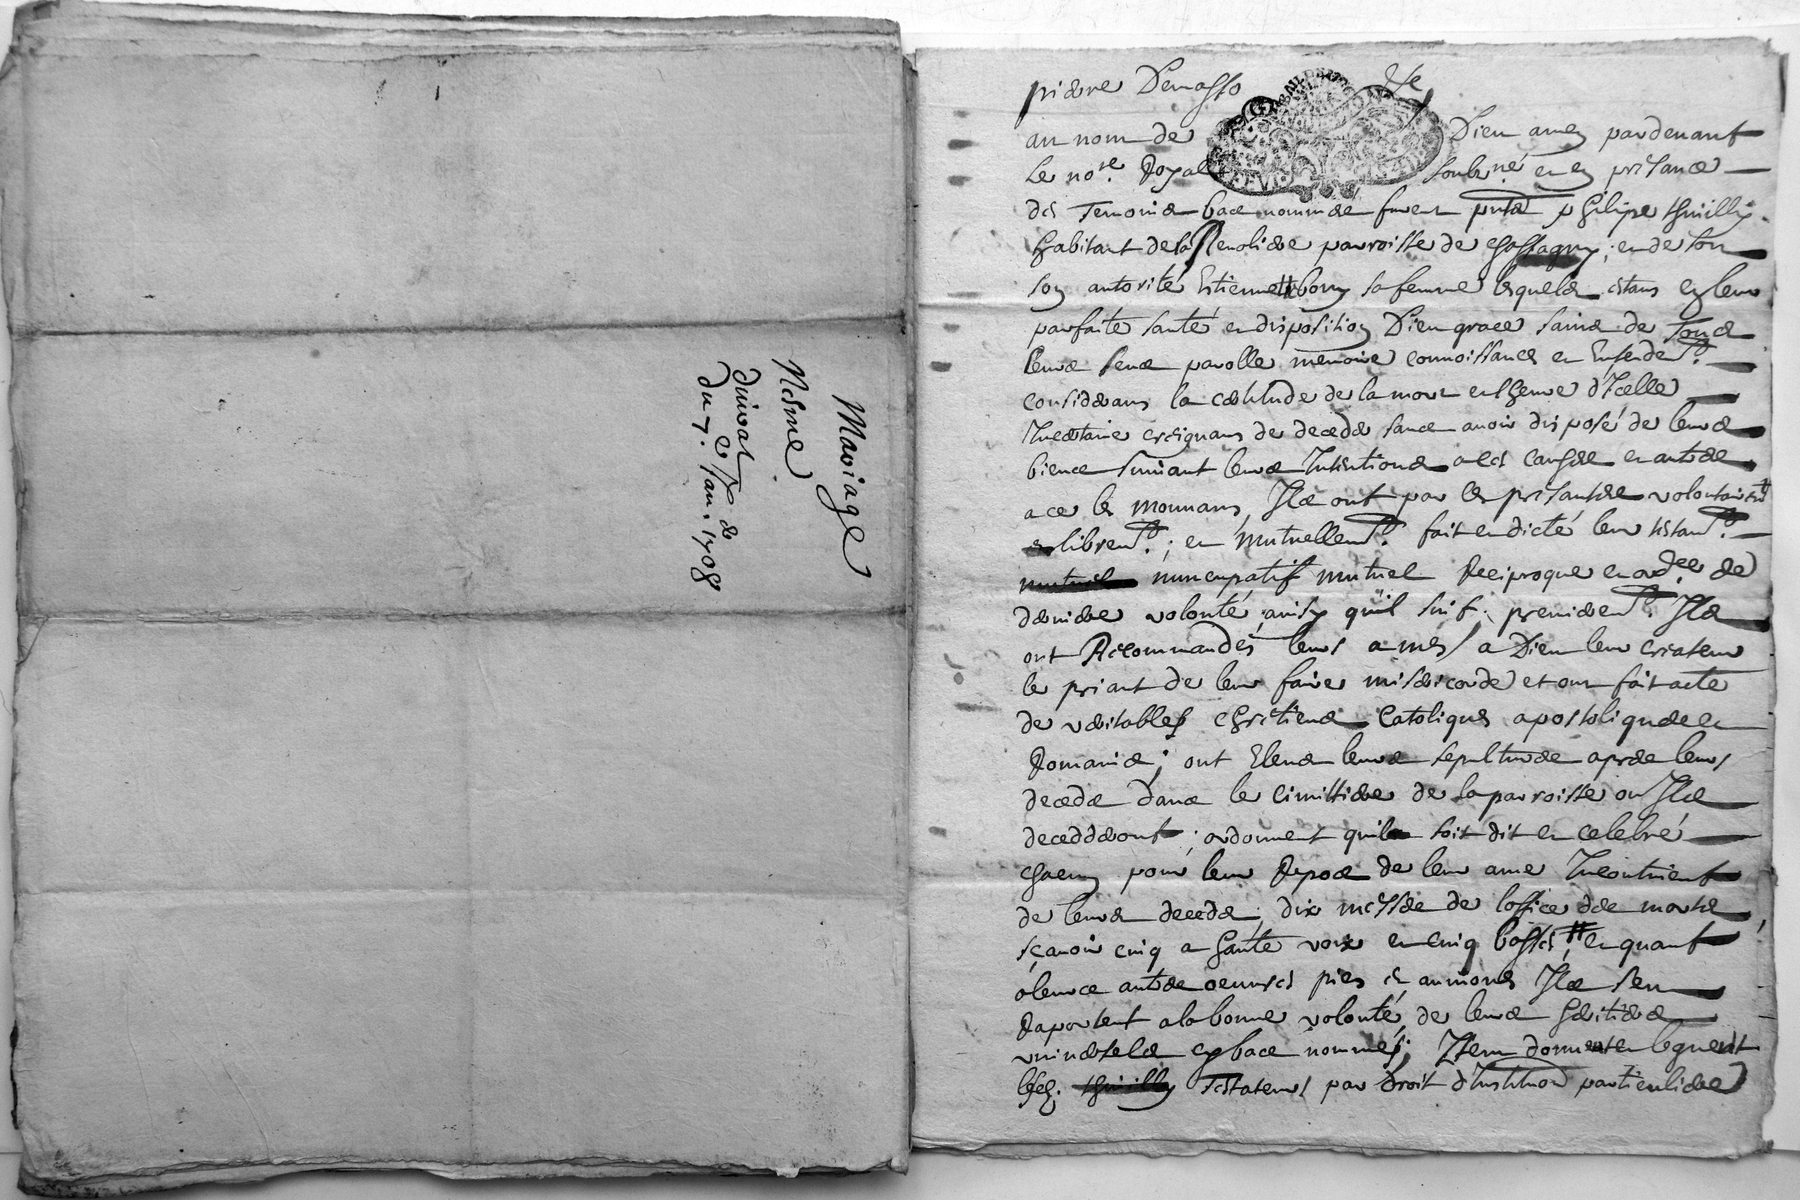 Mariage
Nesme
du 7. Jan. 1708
pierre
au nom de Dieu amen pardevant
Le nore Royal soubzne et en presance
des Temoins bace nommés furent philipe thuilly
habitant de la paroisse de chassagny; et de son
son autorité Estienne bory sa femme lesquels estans en leur
parfaite santé et disposition Dieu grace sains de tous
leurs sens parolle memoire connoissance et Entendemt.
considerans la certitude de la mort et l'heure d'Icelle
Incertaine creignans de deceder sance avoir disposé de leurs
bience suivant leurs Intentions a ces causes et autres
a ce les mouvans, Ils ont par ces presantes volontairemt
et libremt.; et mutuellemt. fait et dicté leur testamt.
nuncupatif mutuel Reciproque et ordce de
derniere volonté, ainsy qu'il suit; premieremt. Ils
ont Recommandés leurs ames a Dieu leur createur
le priant de leur faire misericorde et ont fait acte
de veritables chretiens Catoliques apostoliques et
Romains; ont Eleus leurs sepultures apres leurs
deceds dans le cimittiere de la parroisse ou Ils
decedderont; ordonnent quil soit dit et celebré
chacun pour leur Repos de leur ame Incontinent
de leurs deceds, dix messes de loffice des morts
sçavoir cinq a haute voix et cinq basses # et quant
a leurce autres oeuvres pies et aumones Ils s'en
Raportent a la bonne volonté de leurs heritiers
universels en bace nommés; Item donnent et leguent
testateurs par droit d'Institution particuliere